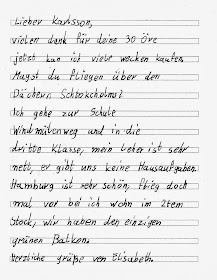 Lieber Karlsson,
vielen dank für deine 30 Öre
jetzt kan ich viele wecken kaufen.
Magst du fliegen über den
Dächern Schtokcholms?
Ich gehe zur Schule
Windmülonweg und in die
dritte Klasse, mein Lehrer ist sehr
nett, er gibt uns keine Hausaufgaben.
Hamburg ist sehr schön, flieg doch
mal vor bei ich wohn im 2tem
Stock, wir haben den einzigen
grünen Balkon.
Herzliche grüße von Elisabeth.